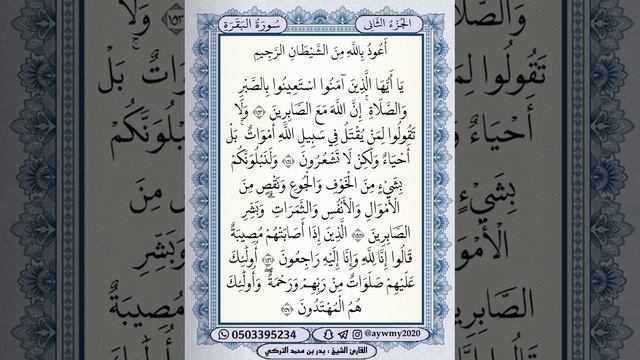 الجزء الثاني
سورة البقرة
أعوذ بالله من الشيطان الرجيم
يَا أَيُّهَا الَّذِينَ آمَنُوا اسْتَعِينُوا بِالصَّبْرِ
وَالصَّلَاةِ ۚ إِنَّ اللَّهَ مَعَ الصَّابِرِينَ ﴿١٥٣﴾ وَلَا
تَقُولُوا لِمَنْ يُقْتَلُ فِي سَبِيلِ اللَّهِ أَمْوَاتٌ ۚ بَلْ
أَحْيَاءٌ وَلَٰكِنْ لَا تَشْعُرُونَ ﴿١٥٤﴾ وَلَنَبْلُوَنَّكُمْ
بِشَيْءٍ مِنَ الْخَوْفِ وَالْجُوعِ وَنَقْصٍ مِنَ
الْأَمْوَالِ وَالْأَنْفُسِ وَالثَّمَرَاتِ ۗ وَبَشِّرِ
الصَّابِرِينَ ﴿١٥٥﴾ الَّذِينَ إِذَا أَصَابَتْهُمْ مُصِيبَةٌ
قَالُوا إِنَّا لِلَّهِ وَإِنَّا إِلَيْهِ رَاجِعُونَ ﴿١٥٦﴾ أُولَٰئِكَ
عَلَيْهِمْ صَلَوَاتٌ مِنْ رَبِّهِمْ وَرَحْمَةٌ ۖ وَأُولَٰئِكَ
هُمُ الْمُهْتَدُونَ ﴿١٥٧﴾
0503395234 @aywmy2020
القارئ الشيخ : بدر بن محمد التركي